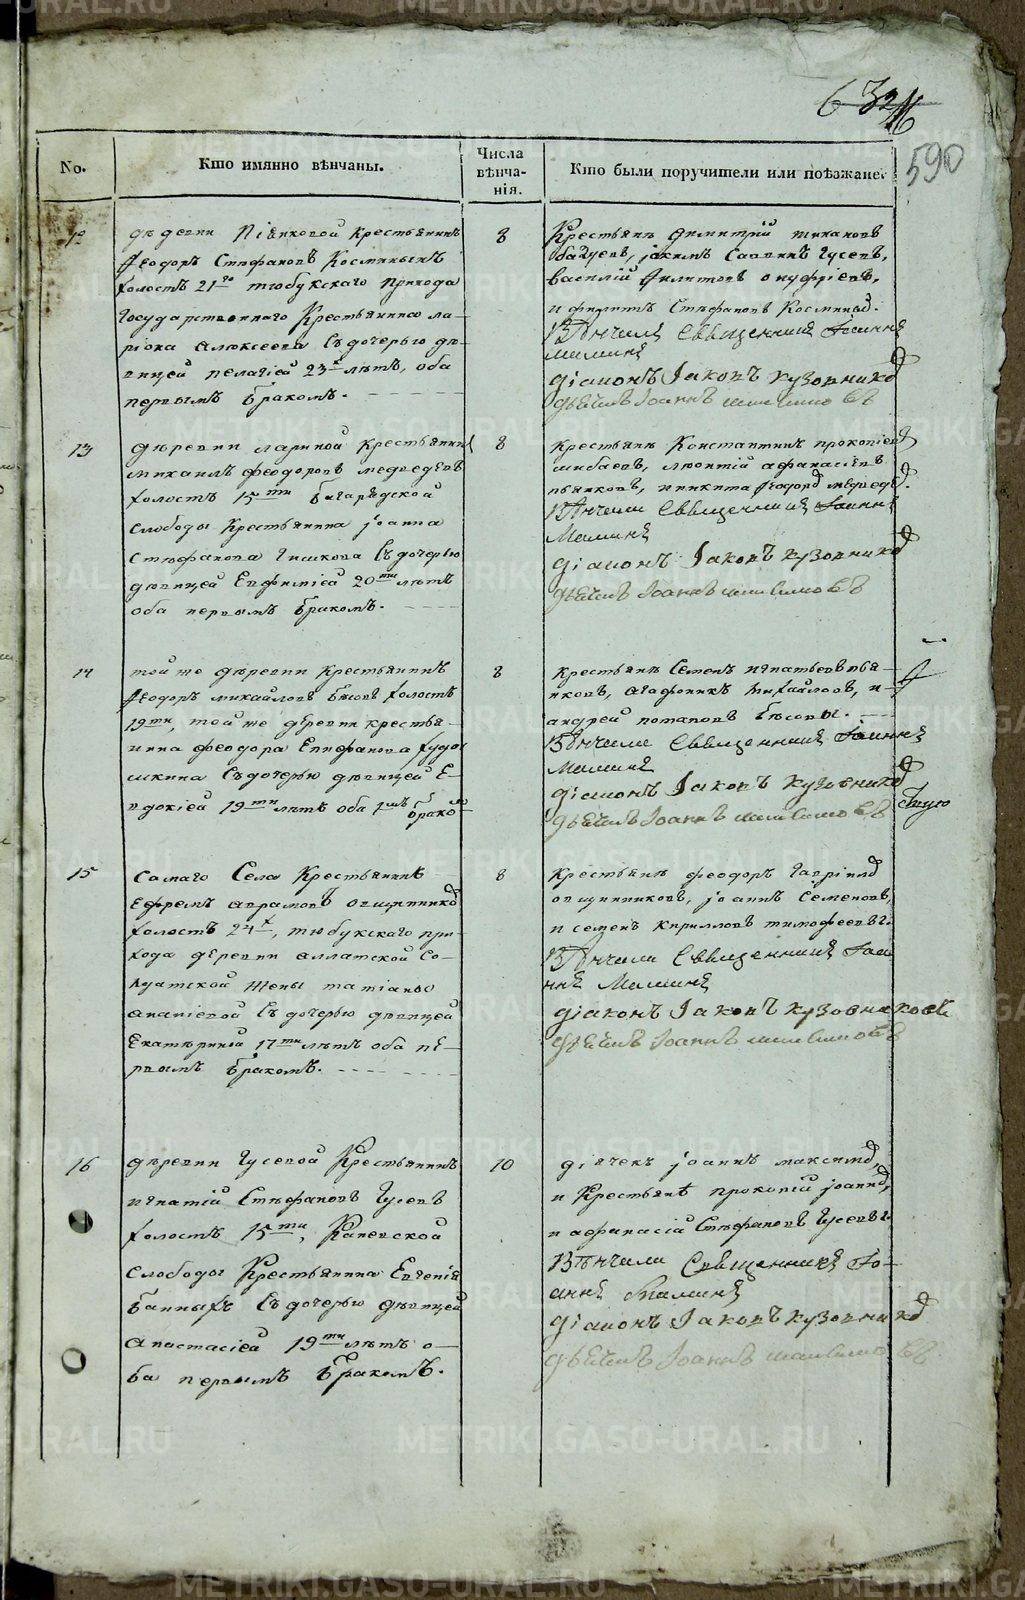 632
16
590
No.
Кто имянно вѣнчаны.
Числа
вѣнча-
нія.
Кто были поручители или поѣзжане.
12
деревни Піянковой Крестьянинъ
Ѳеодоръ Стефановъ Косминыхъ
холостъ 21го тюбукскаго прихода
Государственнаго Крестьянина ла-
ріона алексеева съ дочерью дѣ-
вицей пелагіей 23 лѣтъ, оба
первымъ бракомъ.
8
Крестьяне димитрій
іакимъ Саввинъ Гусевъ,
василій Филитовъ онуфріевъ,
и филитъ Стефановъ Косминыхъ.
Вѣнчали Священникъ Іоаннъ
Маминъ
діаконъ Іаковъ Кузовниковъ
дьячекъ Іоаннъ максимовъ
13
деревни лариной крестьянинъ
михаилъ феодоровъ медведевъ
холостъ 15ти Багарядской
слободы Крестьянина іоанна
Стефанова Гишкова съ дочерью
девицей Евфиміей 20ти лѣтъ
оба первымъ бракомъ.
8
крестьяне Константинъ прокопіевъ
шибаевъ, леонтій афанасіевъ
пьянковъ, и никита феодоровъ медведевъ.
Вѣнчали Священникъ Іоаннъ
Маминъ
діаконъ Іаковъ Кузовниковъ
дьячекъ Іоаннъ максимовъ
14
той же деревни крестьянинъ
Ѳеодоръ михайловъ Бѣсовъ холостъ
19ти, той же деревни крестья-
нина феодора Епифанова
съ дочерью девицей Е-
вдокіей 19ти лѣтъ оба 1мъ бракомъ
8
крестьяне Семенъ игнатьевъ пья-
нковъ, агафоникъ михайловъ, и
андрей потаповъ Бѣсовы.
Вѣнчали Священникъ Іоаннъ
Маминъ
діаконъ Іаковъ Кузовниковъ
дьячекъ Іоаннъ максимовъ
15
самаго Села Крестьянинъ
Ефремъ аврамовъ овчинниковъ
холостъ 24х, тюбукскаго при-
хода деревни аллатской Со-
лдатской жены татіаны
ананіевой съ дочерью девицей
Екатериной 17ти лѣтъ оба пе-
рвымъ бракомъ.
8
крестьяне феодоръ Гавриловъ
овчинниковъ, іоаннъ Семеновъ,
и семенъ Кирилловъ тимофеевы.
Вѣнчали Священникъ Іоа-
ннъ Маминъ
діаконъ Іаковъ Кузовниковъ
дьячекъ Іоаннъ максимовъ
16
деревни Гусевой Крестьянинъ
игнатій Стефановъ Гусевъ
холостъ 15ти, Каневской
Слободы Крестьянина Евгенія
Банныхъ съ дочерью девицей
анастасіей 19ти лѣтъ о-
ба первымъ бракомъ.
10
дьячекъ іоаннъ максимовъ,
и Крестьяне прокопій іоанновъ,
и афанасій Стефановъ Гусевы.
Вѣнчали Священникъ Іо-
аннъ Маминъ
діаконъ Іаковъ Кузовниковъ
дьячекъ Іоаннъ максимовъ
METRIKI.GASO-URAL.RU